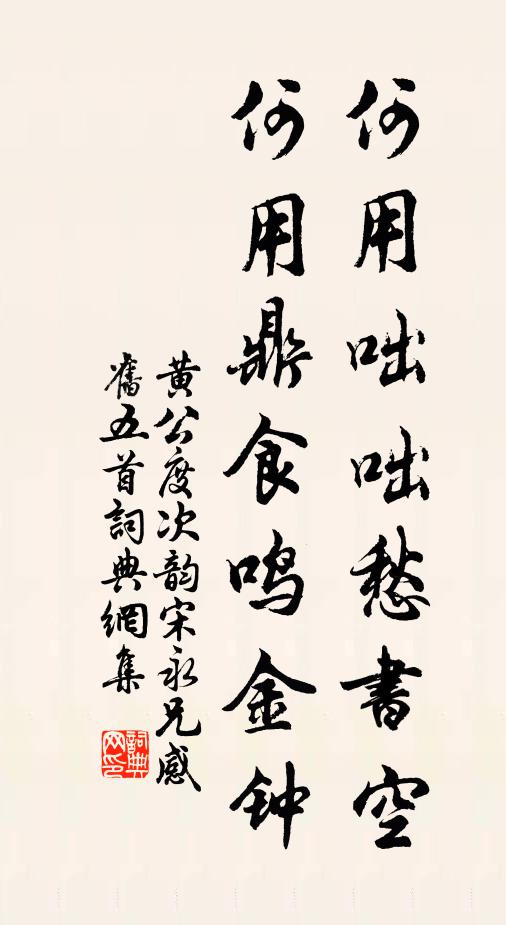 何用咄咄愁書空
何用鼎食鸣金钟
黄公度次韵宋永兄感
舊五首詞典網集
詞典网印